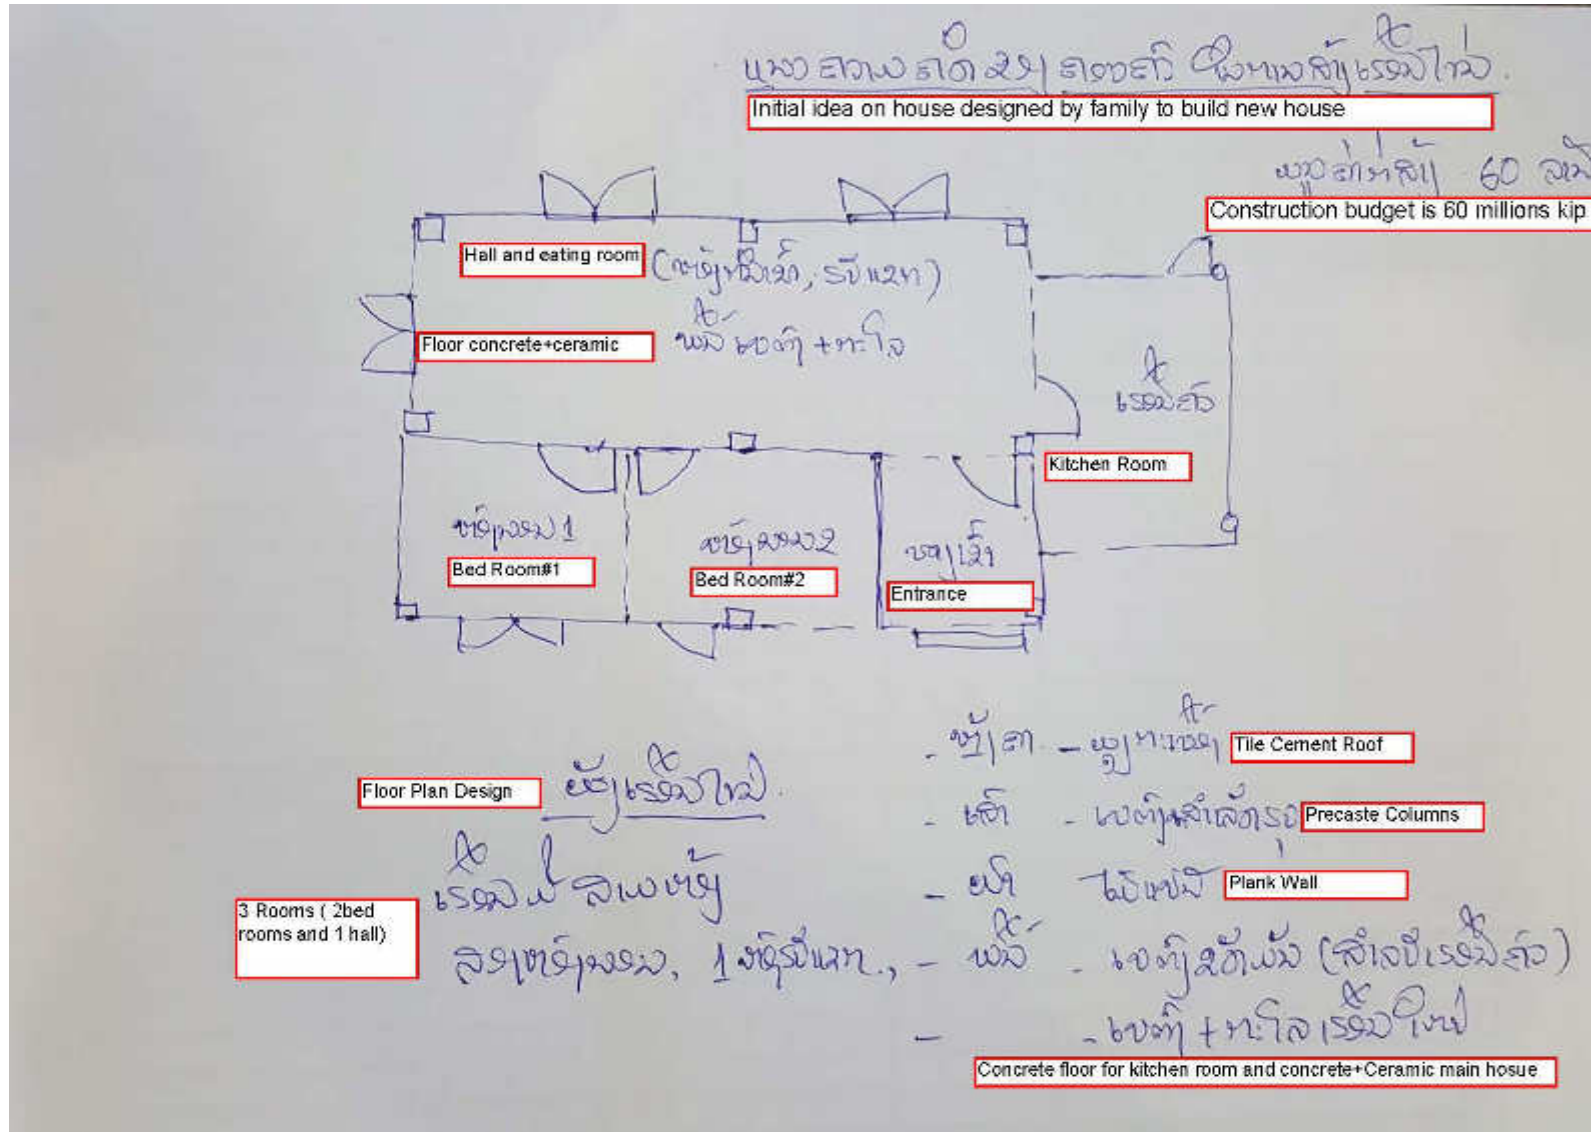 ແນວຄວາມຄິດຂອງຄອບຄົວ ໃນການສ້າງເຮືອນໃໝ່.
Initial idea on house designed by family to build new house
ມູນຄ່າກໍ່ສ້າງ 60 ລ້ານ
Construction budget is 60 millions kip
Hall and eating room
(ຫ້ອງກິນເຂົ້າ, ຮັບແຂກ)
Floor concrete+ceramic
ພື້ນ ເບຕົງ +ກະໂລ
ເຮືອນຄົວ
Kitchen Room
ຫ້ອງນອນ 1
Bed Room#1
ຫ້ອງນອນ 2
Bed Room#2
ທາງເຂົ້າ
Entrance
Floor Plan Design
ຜັງເຮືອນໃໝ່.
ເຮືອນມີ ສາມຫ້ອງ
3 Rooms ( 2bed
rooms and 1 hall)
ສອງຫ້ອງນອນ, 1 ຫ້ອງຮັບແຂກ.,
- ຫຼັງຄາ - ມຸງກະເບື້ອງ
Tile Cement Roof
- ເສົາ - ເບຕົງສຳເລັດຮູບ
Precaste Columns
- ຝາ ໄມ້ແປ້ນ
Plank Wall
- ພື້ນ - ເບຕົງຂັດມັນ (ສຳລັບເຮືອນຄົວ)
- - ເບຕົງ + ກະໂລ ເຮືອນໃຫຍ່
Concrete floor for kitchen room and concrete+Ceramic main hosue